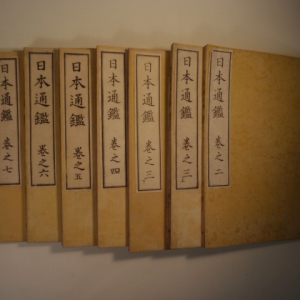 日本通鑑 巻之二
日本通鑑 巻之三
日本通鑑 巻之三
日本通鑑 巻之四
日本通鑑 巻之五
日本通鑑 巻之六
日本通鑑 巻之七